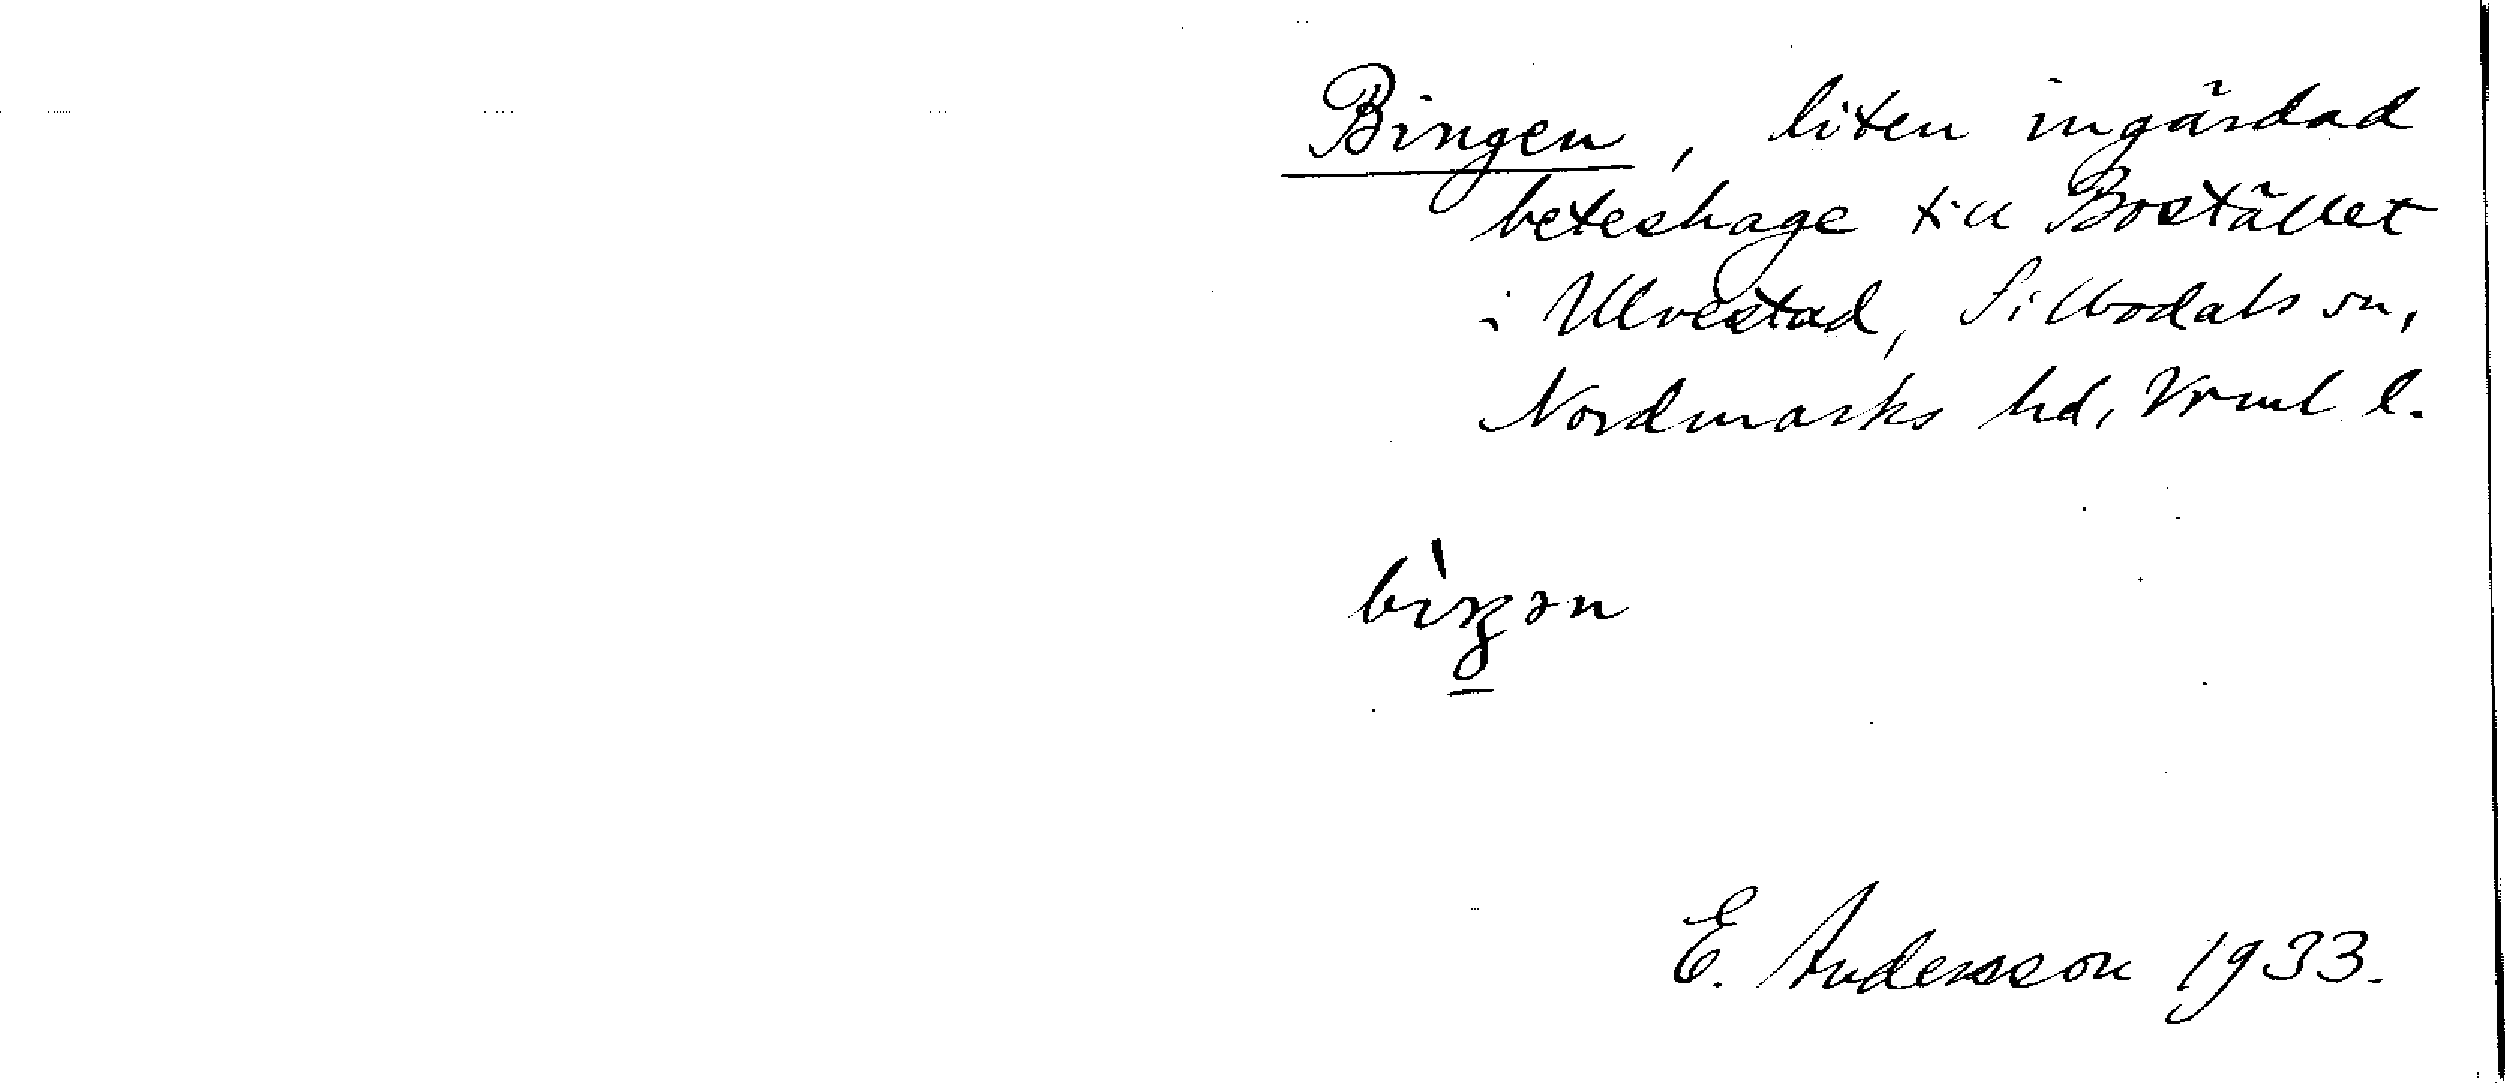 Bingen, liten ingärdad
beteshage till Bostället
i Ulvestad, Silbodals sn,
Nordmarks hd, Vrml l.
E. Andersson 1933.